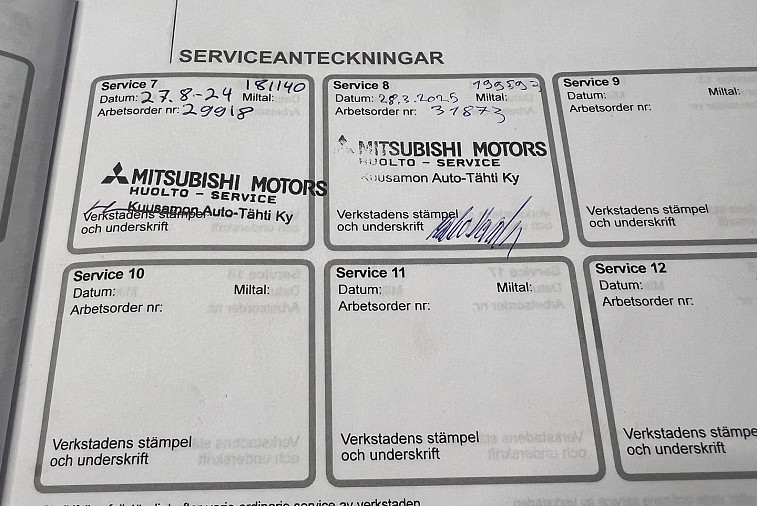 SERVICEANTECKNINGAR
Service 7 181140
Datum: 27.8.-24 Miltal:
Arbetsorder nr: 29918
MITSUBISHI MOTORS
HUOLTO - SERVICE
Kuusamon Auto-Tähti Ky
Verkstadens stämpel
och underskrift
Service 8
Datum: 28.3.2025 Miltal:
Arbetsorder nr: 31873
MITSUBISHI MOTORS
HUOLTO - SERVICE
Kuusamon Auto-Tähti Ky
Verkstadens stämpel
och underskrift
Service 9
Datum: Miltal:
Arbetsorder nr:
Verkstadens stämpel
och underskrift
Service 10
Datum: Miltal:
Arbetsorder nr:
Verkstadens stämpel
och underskrift
Service 11
Datum: Miltal:
Arbetsorder nr:
Verkstadens stämpel
och underskrift
Service 12
Datum:
Arbetsorder nr:
Verkstadens stämpe
och underskrift
efter varje ordinarie service av verkstaden